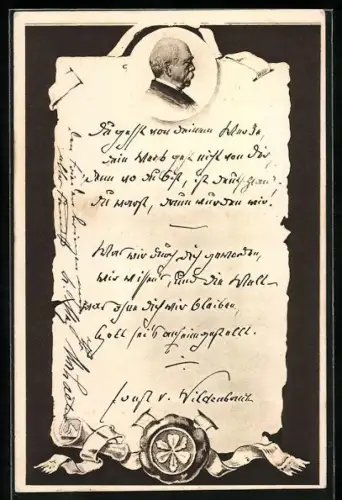 Du gehst von deinem Werke,
dein Werk geht nicht von dir,
denn wo du bist, ist Deutschland.
Du warst, drum wurden wir.
Was wir durch dich geworden,
wir wissen's, und die Welt –
was ohne dich wir bleiben,
Gott sei's anheimgestellt.
Ernst v. Wildenbruch